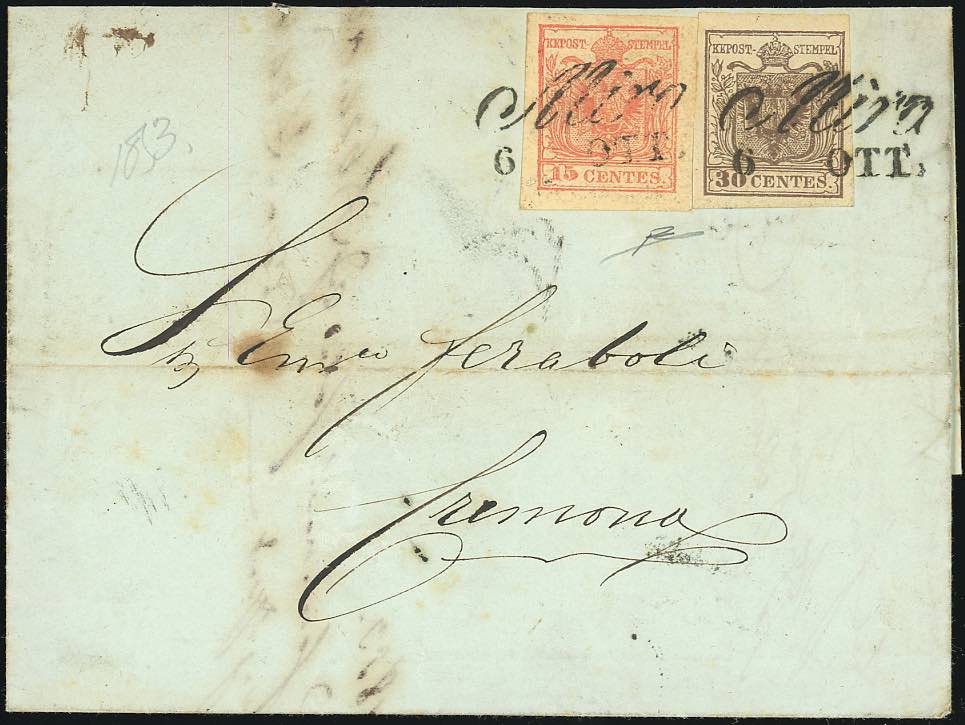 KKPOST- STEMPEL
KKPOST- STEMPEL
Mira
Mira
6 OTT.
6 OTT.
15 CENTES.
30 CENTES.
183.
Feraboli
Cremona